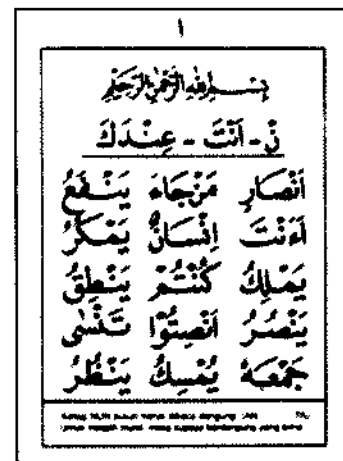 ١
بِسْمِ اللهِ الرَّحْمٰنِ الرَّحِيْمِ
نْ - اَنْتَ - عِنْدَكَ
اَنْصَارِ مَنْ جَاءَ يَنْفَعُ
أَءَنْتَ اِنْسَانٌ يَمْكُرُ
يَمْلِكُ كُنْتُمْ يَنْطِقُ
يَنْصُرُ اَنْصِتُوْا تَنْسٰى
جَمْعَهُ يُمْسِكُ يَنْظُرُ